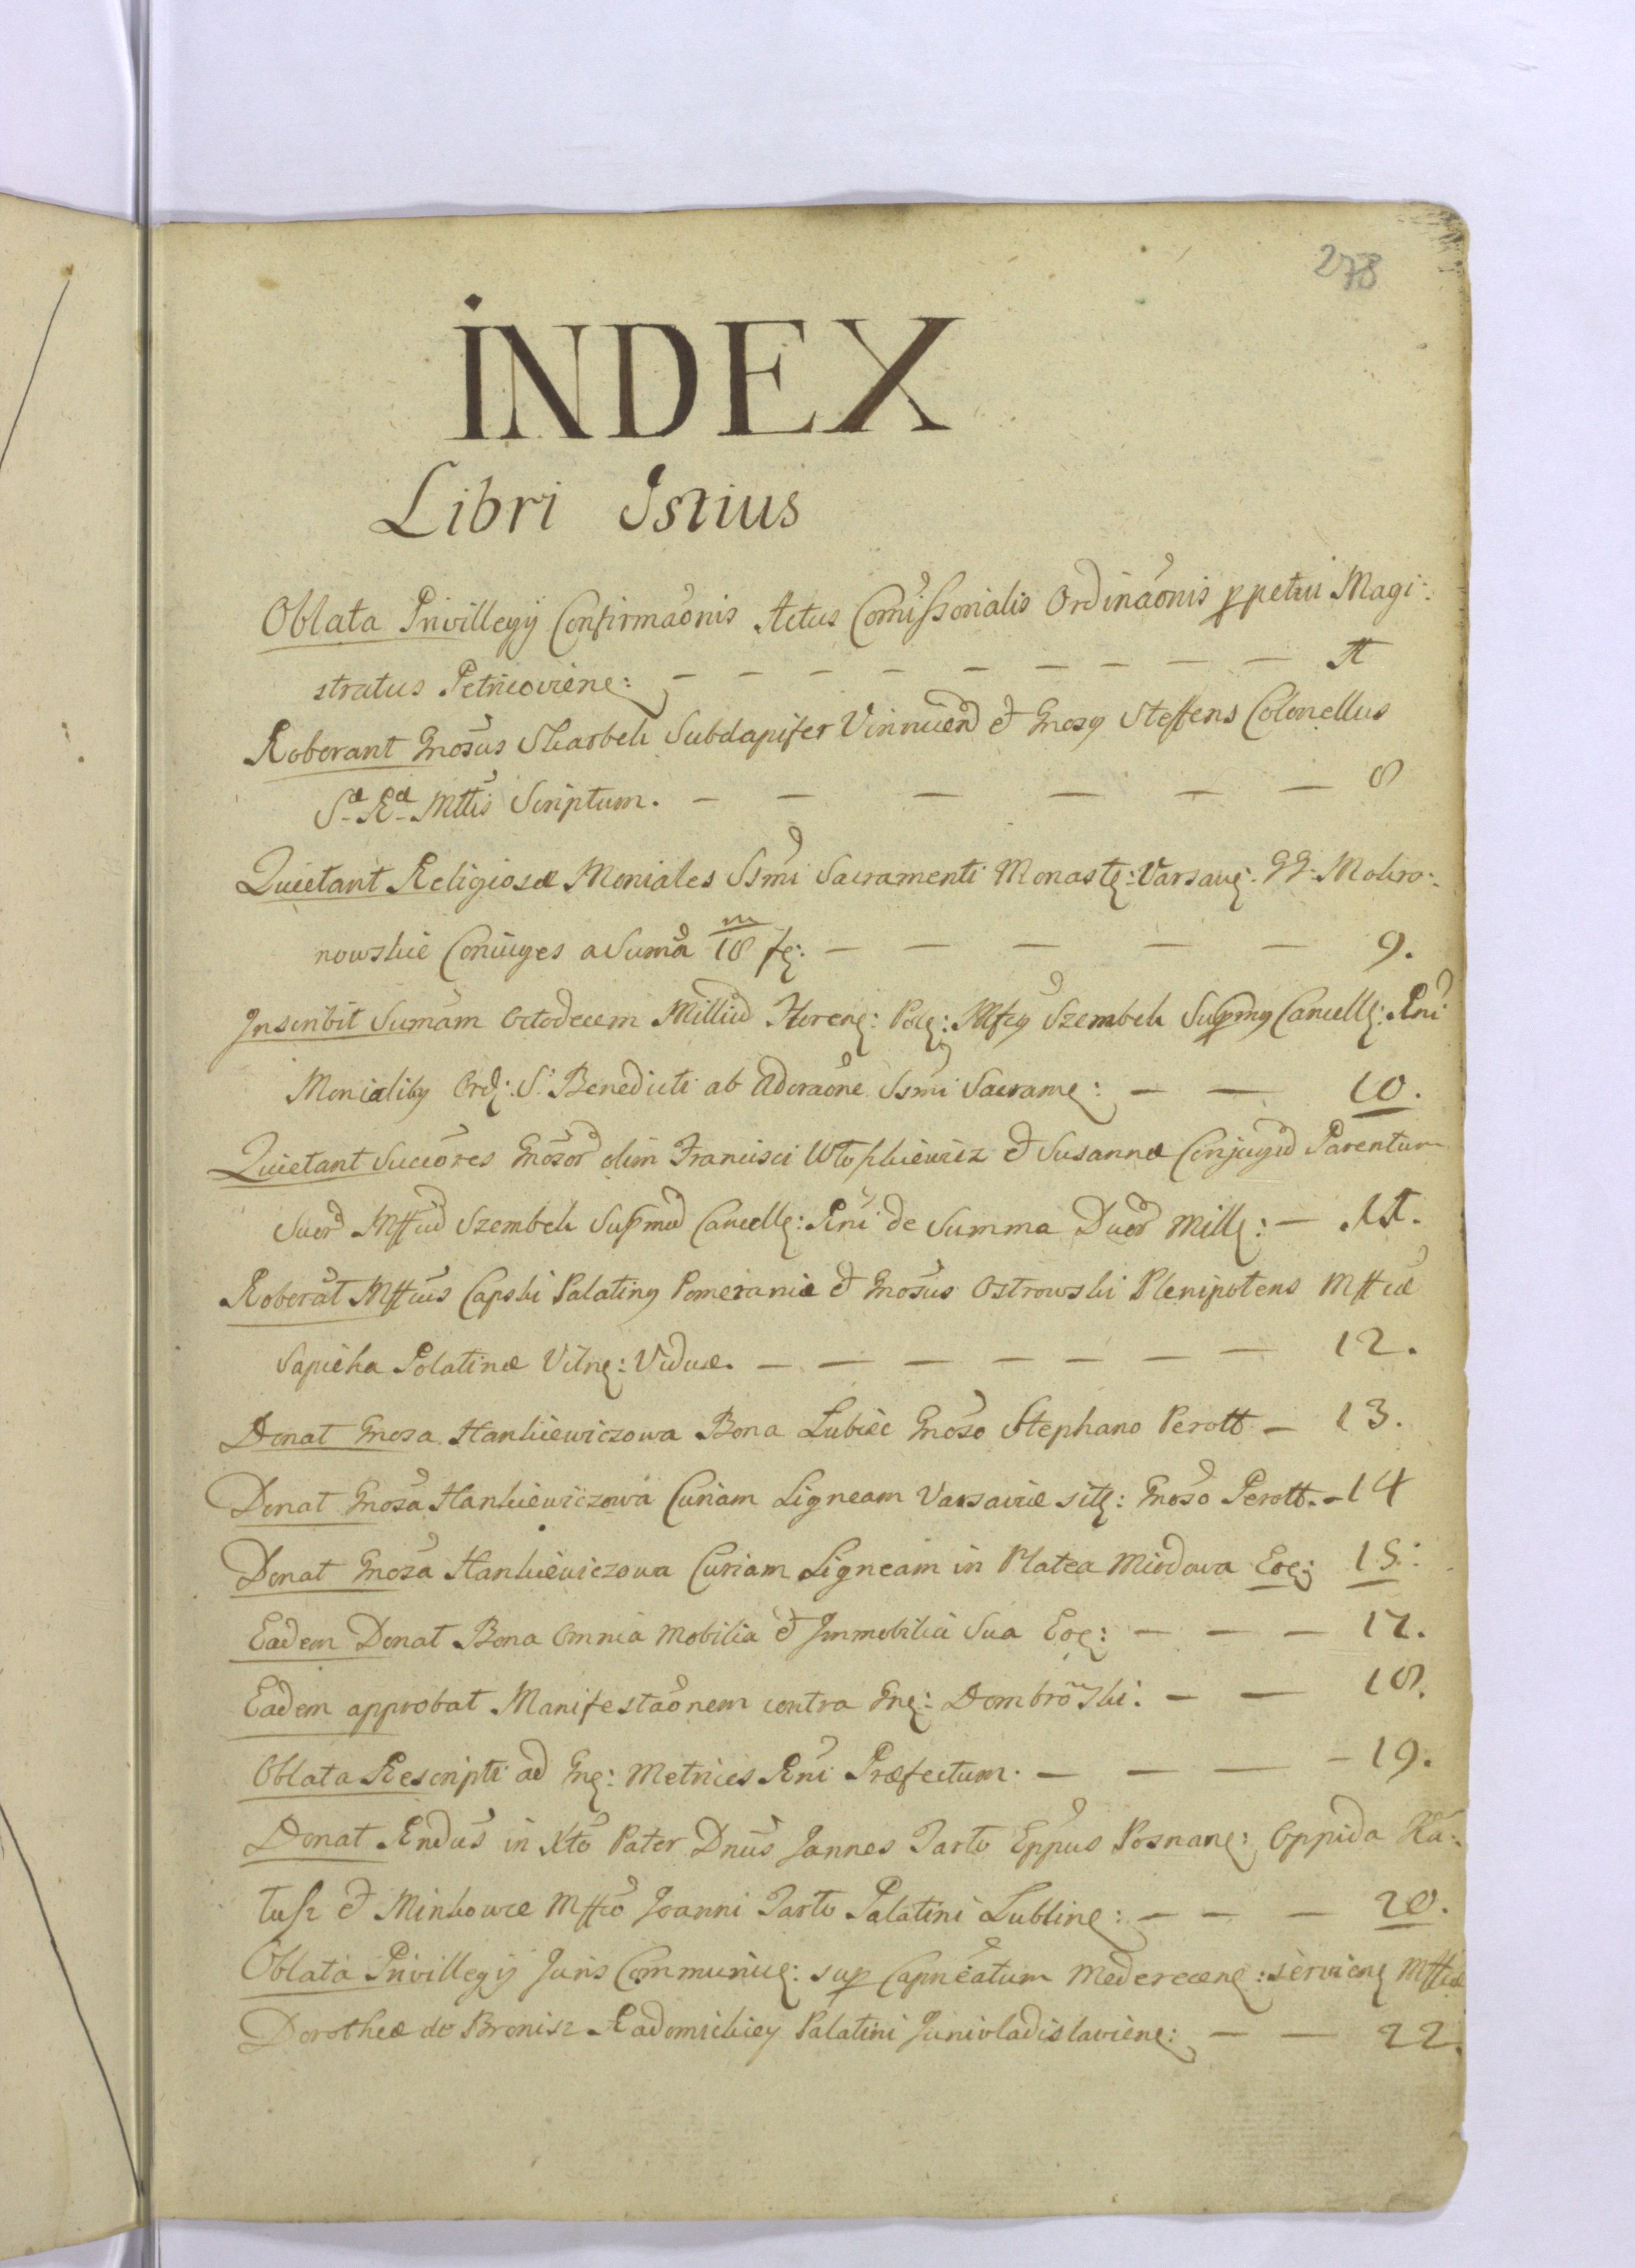 278
INDEX
Libri Istius
Oblata Privillegij Confirmaõnis Actus Comissorialis Ordinaõnis ppetui Magi:
stratus Petricoviens: — — — — — — — — — 1
Roborant Gnosus Skarbek Subdapifer Vinnicen et Gnosy Steffens Colonellus
Sæ Ræ Mttis Scriptum. — — — — — 8
Quietant Religiosæ Moniales Ssmi Sacramenti Monastę: Varsavę: GG: Mokro:
nowskie Coniuges a Suma 18 m fę: — — — — — 9.
Inscribit Sumam Octodecem Milliu Florenę: Polę: Mfcy Szembek Supmy Cancellę: Rni
Monialiby Ordę: S. Benedicti ab Adoraõne Ssmi Sacramę: — — 10.
Quietant Succõres Gnosor olim Francisci Włopkiewicz et Susannæ Conjugu Parentum
Suor Mffcu Szembek Supmu Cancellę: Rni de Summa Duor Millę: — 11.
Roborat Mffcus Capski Palatiny Pomeraniæ et Gnosus Ostrowski Plenipotens Mffcæ
Sapieha Palatinæ Vilnę: Viduæ. — — — — — — — 12.
Donat Gnosa Hankiewiczowa Bona Lubiec Gnoso Stephano Perott — 13.
Donat Gnosa Hankiewiczowa Curiam Ligneam Varsaviæ sitę: Gnoso Perott. — 14
Donat Gnosa Hankiewiczowa Curiam Ligneam in Platea Miodowa Eoę: 15:
Eadem Donat Bona Omnia Mobilia et Immobilia Sua Eoę: — — — 17.
Eadem approbat Manifestaõnem contra Gnę: Dombrowski: — — 18.
Oblata Rescripti ad Gnę: Metrices Rni Præfectum. — — — — 19.
Donat Rndus in Xto Pater Dnus Joannes Tarło Eppus Posnanę: Oppida Ka:
łusz et Minkowce Mffco Joanni Tarło Palatini Lublinę: — — — 20.
Oblata Privillegij Juris Communicę: sup Capneatum Mederecenę: servienę Mffcæ
Dorotheæ de Bronisz Radomickiey Palatini Junivladislavienę: — — 22.